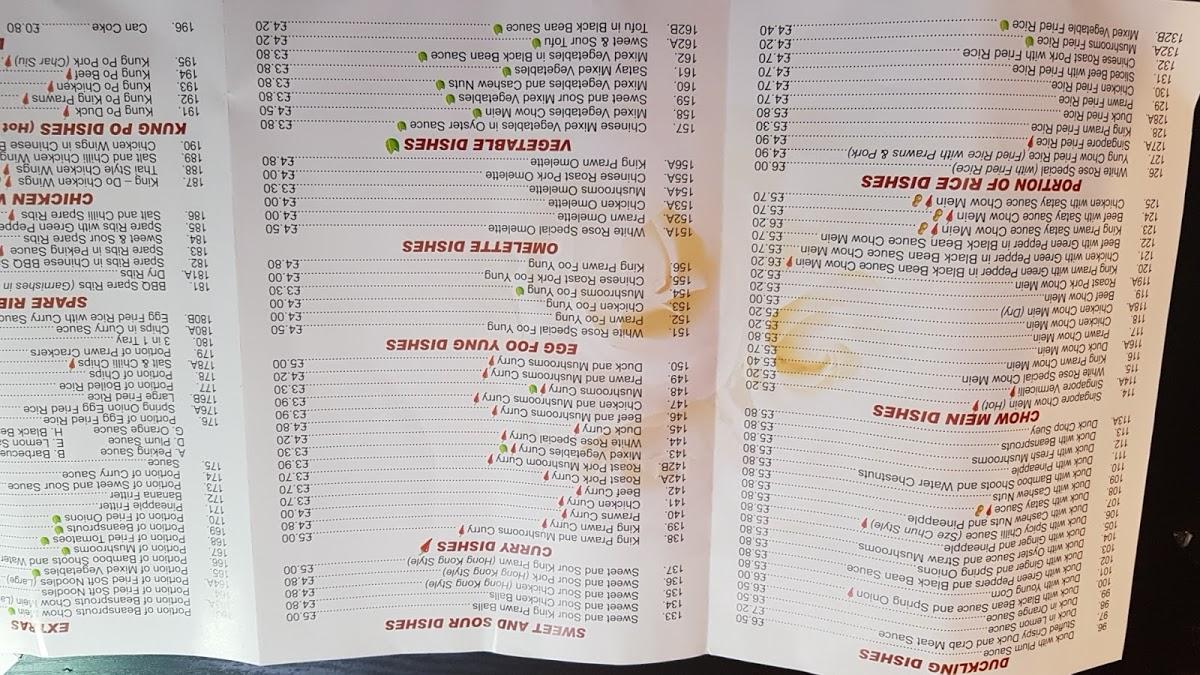 DUCKLING DISHES
96. Duck with Plum Sauce £6.50
97. Stuffed Crispy Duck and Crab Meat Sauce £7.20
98. Duck in Lemon Sauce
99. Duck in Orange Sauce
100. Duck with Black Bean Sauce and Spring Onion
101. Duck with Young Corn
102. Duck with Green Peppers and Black Bean Sauce
103. Duck with Ginger and Spring Onions
104. Duck with Oyster Sauce and Straw Mushrooms
105. Duck with Ginger and Pineapple
106. Duck with Spicy Chilli Sauce (Sze Chun Style)
107. Duck with Cashew Nuts and Pineapple
108. Duck with Satay Sauce
109. Duck with Cashew Nuts
110. Duck with Pineapple
111. Duck with Bamboo Shoots and Water Chestnuts
112. Duck with Fresh Mushrooms
113. Duck with Beansprouts £5.80
113A. Duck Chop Suey £5.80
CHOW MEIN DISHES
114. Singapore Chow Mein (Hot) £5.20
114A. Singapore Vermicelli £5.20
115. White Rose Special Chow Mein £5.40
116. King Prawn Chow Mein £5.70
116A. Duck Chow Mein £5.80
117. Prawn Chow Mein £5.20
118. Chicken Chow Mein £5.20
118A. Chicken Chow Mein (Dry) £5.00
119. Beef Chow Mein £5.20
119A. Roast Pork Chow Mein £5.20
120. King Prawn with Green Pepper in Black Bean Sauce Chow Mein £6.20
121. Chicken with Green Pepper in Black Bean Sauce Chow Mein £5.70
122. Beef with Green Pepper in Black Bean Sauce Chow Mein £5.70
123. King Prawn Satay Sauce Chow Mein £6.20
124. Beef with Satay Sauce Chow Mein £5.70
125. Chicken with Satay Sauce Chow Mein £5.70
PORTION OF RICE DISHES
126. White Rose Special (with Fried Rice) £6.00
127. Yung Chow Fried Rice (Fried Rice with Prawns & Pork) £4.90
127A. Singapore Fried Rice £4.90
128. King Prawn Fried Rice £5.30
128A. Duck Fried Rice £5.80
129. Prawn Fried Rice £4.70
130. Chicken Fried Rice £4.70
131. Sliced Beef with Fried Rice £4.70
132. Chinese Roast Pork with Fried Rice £4.70
132A. Mushrooms Fried Rice £4.20
132B. Mixed Vegetable Fried Rice £4.40
SWEET AND SOUR DISHES
133. Sweet and Sour King Prawn Balls £5.00
134. Sweet and Sour Chicken Balls £4.80
135. Sweet and Sour Chicken (Hong Kong Style) £4.80
136. Sweet and Sour Pork (Hong Kong Style) £4.80
137. Sweet and Sour King Prawn (Hong Kong Style) £5.00
CURRY DISHES
138. King Prawn and Mushrooms Curry £5.00
139. King Prawn Curry £4.80
140. Prawns Curry £4.00
141. Chicken Curry £3.70
142. Beef Curry £3.70
142A. Roast Pork Curry £3.70
142B. Roast Pork Mushroom Curry £3.90
143. Mixed Vegetables Curry £3.30
144. White Rose Special Curry £4.20
145. Duck Curry £4.80
146. Beef and Mushrooms Curry £3.90
147. Chicken and Mushrooms Curry £3.90
148. Mushrooms Curry £3.30
149. Prawn and Mushrooms Curry £4.20
150. Duck and Mushrooms Curry £5.00
EGG FOO YUNG DISHES
151. White Rose Special Foo Yung £4.50
152. Prawn Foo Yung £4.00
153. Chicken Foo Yung £4.00
154. Mushrooms Foo Yung £3.30
155. Chinese Roast Pork Foo Yung £4.00
156. King Prawn Foo Yung £4.80
OMELETTE DISHES
151A. White Rose Special Omelette £4.50
152A. Prawn Omelette £4.00
153A. Chicken Omelette £4.00
154A. Mushrooms Omelette £3.30
155A. Chinese Roast Pork Omelette £4.00
156A. King Prawn Omelette £4.80
VEGETABLE DISHES
157. Chinese Mixed Vegetables in Oyster Sauce £3.80
158. Mixed Vegetables Chow Mein £4.50
159. Sweet and Sour Mixed Vegetables £3.80
160. Mixed Vegetables and Cashew Nuts £3.80
161. Satay Mixed Vegetables £3.80
162. Mixed Vegetables in Black Bean Sauce £3.80
162A. Sweet & Sour Tofu £4.20
162B. Tofu in Black Bean Sauce £4.20
EXTRAS
Portion of Beansprouts Chow Mein
Portion of Beansprouts Chow Mein (La
Portion of Fried Soft Noodles
164A. Portion of Fried Soft Noodles (Large)
165. Portion of Mixed Vegetables
166. Portion of Bamboo Shoots and Water
167. Portion of Mushrooms
168. Portion of Fried Tomatoes
169. Portion of Beansprouts
170. Portion of Fried Onions
171. Pineapple Fritter
172. Banana Fritter
173. Portion of Sweet and Sour Sauce
174. Portion of Curry Sauce
175. Sauce
A. Peking Sauce B. Barbecue
D. Plum Sauce E. Lemon Sa
G. Orange Sauce H. Black Be
176. Portion of Egg Fried Rice
176A. Spring Onion Egg Fried Rice
176B. Large Fried Rice
177. Portion of Boiled Rice
178. Portion of Chips
178A. Salt & Chilli Chips
179. Portion of Prawn Crackers
180. 3 in 1 Tray
180A. Chips in Curry Sauce
180B. Egg Fried Rice with Curry Sauce
SPARE RIB
181. BBQ Spare Ribs (Garnishes in
181A. Dry Ribs
182. Spare Ribs in Chinese BBQ S
183. Spare Ribs in Peking Sauce
184. Sweet & Sour Spare Ribs
185. Spare Ribs with Green Peppe
186. Salt and Chilli Spare Ribs
CHICKEN W
187. King - Do Chicken Wings
188. Thai Style Chicken Wings
189. Salt and Chilli Chicken Wing
190. Chicken Wings in Chinese B
KUNG PO DISHES (Hot
191. Kung Po Duck
192. Kung Po King Prawns
193. Kung Po Chicken
194. Kung Po Beef
195. Kung Po Pork (Char Siu)
196. Can Coke £0.80